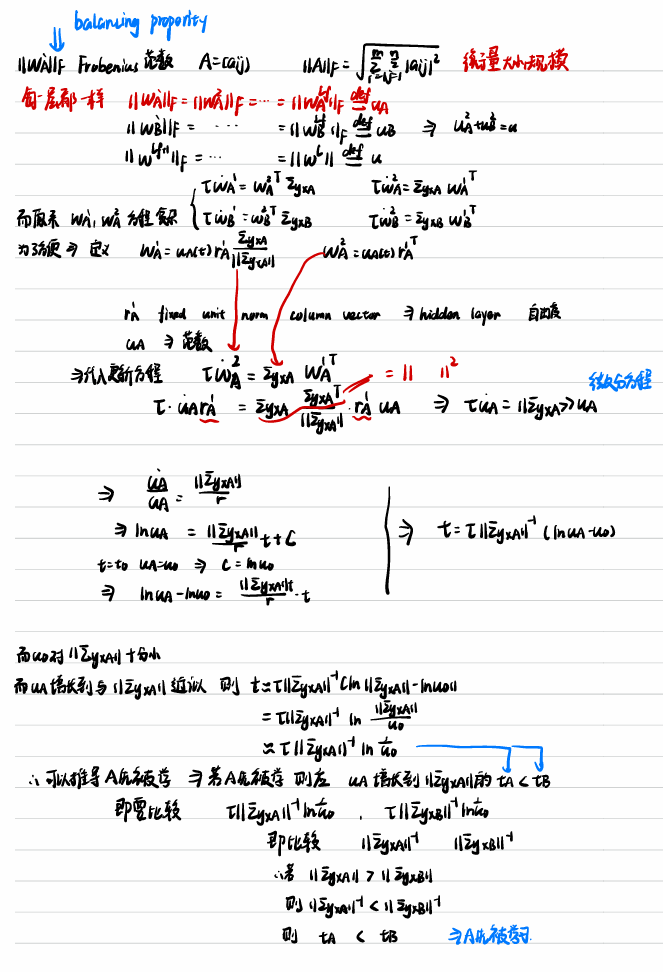 balancing propority
||W_A^1||_F Frobenius 范数 A=(aij) ||A||_F = √(∑_{i=1}^m ∑_{j=1}^n |aij|²) 衡量大小规模
每一层都一样 ||W_A^1||_F = ||W_A^2||_F = ··· = ||W_A^{lf}||_F ≝ u_A
||W_B^1||_F = ··· = ||W_B^{lf}||_F ≝ u_B ⇒ u_A²+u_B²=u
||W^{lf+1}||_F = ··· = ||W^L|| ≝ u
τẆ_A^1 = W_A^{2T} Σ_{yxA} τẆ_A^2 = Σ_{yxA} W_A^{1T}
而原来 W_A^1, W_A^2 方程
τẆ_B^1 = W_B^{2T} Σ_{yxB} τẆ_B^2 = Σ_{yxB} W_B^{1T}
为了方便 ⇒ 定义 W_A^1 = u_A(t) r_A^1 Σ_{yxA}/||Σ_{yxA}|| W_A^2 = u_A(t) r_A^{1T}
r_A^1 fixed unit norm column vector ⇒ hidden layer 自由度
u_A ⇒ 范数
⇒代入更新方程 τẆ_A^2 = Σ_{yxA} W_A^{1T} = || ||²
τ· u̇_A r_A^1 = Σ_{yxA} Σ_{yxA}^T/||Σ_{yxA}|| · r_A^1 u_A ⇒ τu̇_A = ||Σ_{yxA}|| u_A
微分方程
⇒ u̇_A/u_A = ||Σ_{yxA}||/τ
⇒ ln u_A = ||Σ_{yxA}||/τ t + C ⇒ t = τ||Σ_{yxA}||^{-1} (ln u_A - u_0)
t=t_0 u_A=u_0 ⇒ C = ln u_0
⇒ ln u_A - ln u_0 = ||Σ_{yxA}||t/τ · t
而u_0对||Σ_{yxA}||十分小
而u_A增长到与||Σ_{yxA}||近似 则 t ≃ τ||Σ_{yxA}||^{-1} (ln ||Σ_{yxA}|| - ln u_0)
= τ||Σ_{yxA}||^{-1} ln ||Σ_{yxA}||/u_0
≃ τ||Σ_{yxA}||^{-1} ln 1/u_0
∴ 可以推导A先被学 ⇒ 若A先被学 则 u_A 增长到||Σ_{yxA}||的 t_A < t_B
即要比较 τ||Σ_{yxA}||^{-1} ln 1/u_0 , τ||Σ_{yxB}||^{-1} ln 1/u_0
即比较 ||Σ_{yxA}||^{-1} ||Σ_{yxB}||^{-1}
∴若 ||Σ_{yxA}|| > ||Σ_{yxB}||
则 ||Σ_{yxA}||^{-1} < ||Σ_{yxB}||^{-1}
则 t_A < t_B ⇒A先被学习